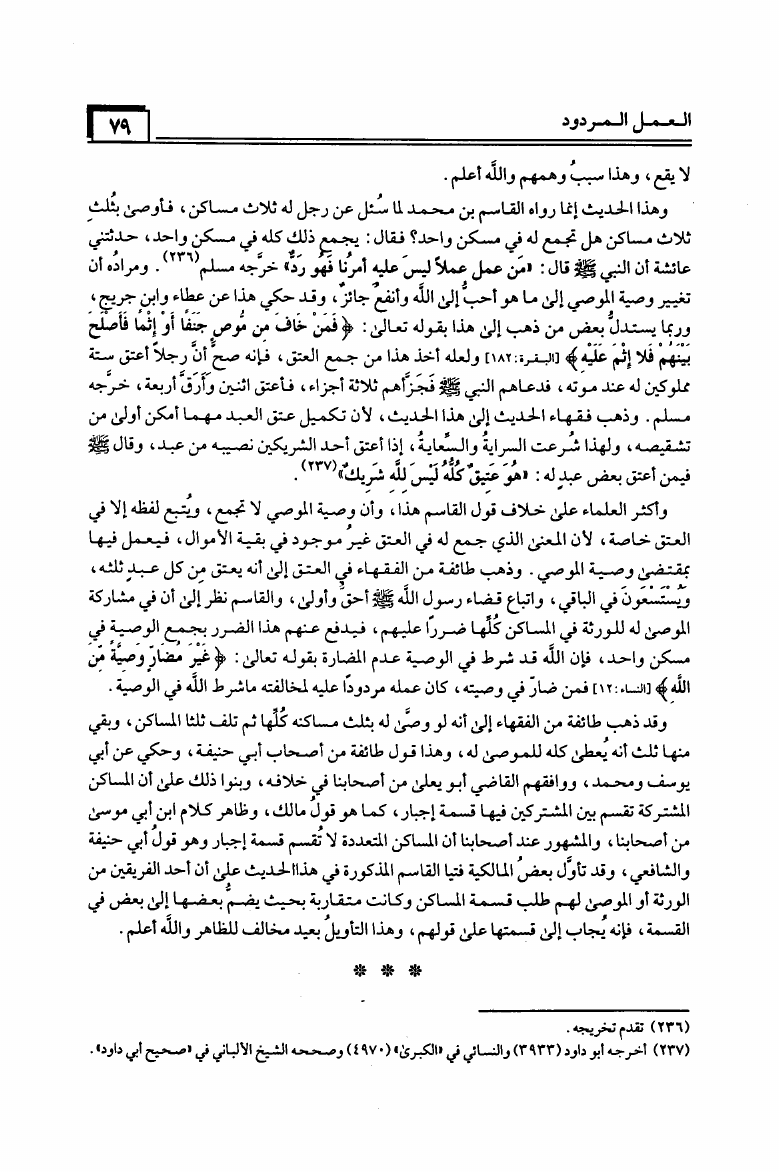 العمل المردود
٧٩
لا يقع، وهذا سببُ وهمهم واللَّه أعلم.
وهذا الحديث إنما رواه القاسم بن محمد لما سُئل عن رجل له ثلاث مساكن، فأوصىٰ بثُلثِ
ثلاث مساكن هل تجمع له في مسكن واحد؟ فقال: يجمع ذلك كله في مسكن واحد، حدثتني
عائشة أن النبي ﷺ قال: «مَن عمل عملاً ليسَ عليه أمرُنا فَهُو رَدٌّ» خرَّجه مسلم(٢٣٦). ومرادُه أن
تغيير وصية الموصي إلىٰ ما هو أحبُّ إلىٰ اللَّه وأنفعُ جائزٌ، وقد حكي هذا عن عطاء وابن جريج،
وربما يستدلُّ بعض من ذهب إلىٰ هذا بقوله تعالىٰ: ﴿ فَمَنْ خَافَ مِن مُّوصٍ جَنَفًا أَوْ إِثْمًا فَأَصْلَحَ
بَيْنَهُمْ فَلا إِثْمَ عَلَيْهِ ﴾ [البقرة:١٨٢] ولعله أخذ هذا من جمع العتق، فإنه صحَّ أنَّ رجلاً أعتق ستة
مملوكين له عند موته، فدعاهم النبي ﷺ فَجَزَّأهم ثلاثة أجزاء، فأعتق اثنين وَأَرَقَّ أربعة، خرَّجه
مسلم. وذهب فقهاء الحديث إلىٰ هذا الحديث، لأن تكميل عتق العبد مهما أمكن أولىٰ من
تشقيصه، ولهذا شُرعت السرايةُ والسِّعايةُ، إذا أعتق أحد الشريكين نصيبه من عبد، وقال ﷺ
فيمن أعتق بعض عبدٍ له: «هُوَ عَتِيقٌ كُلُّهُ لَيْسَ لِلَّهِ شَرِيكٌ»(٢٣٧).
وأكثر العلماء علىٰ خلاف قول القاسم هذا، وأن وصية الموصي لا تجمع، ويُتبع لفظه إلا في
العتق خاصة، لأن المعنىٰ الذي جمع له في العتق غيرُ موجود في بقية الأموال، فيعمل فيها
بمقتضىٰ وصية الموصي. وذهب طائفة من الفقهاء في العتق إلىٰ أنه يعتق مِن كل عبدٍ ثلثه،
وَيُسْتَسْعَونَ في الباقي، واتباع قضاء رسول اللَّه ﷺ أحقُّ وأولىٰ، والقاسم نظر إلىٰ أن في مشاركة
الموصىٰ له للورثة في المساكن كُلِّها ضررًا عليهم، فيدفع عنهم هذا الضرر بجمع الوصية في
مسكن واحد، فإن اللَّه قد شرط في الوصية عدم المضارة بقوله تعالىٰ: ﴿ غَيْرَ مُضَارٍّ وَصِيَّةً مِّنَ
اللَّهِ ﴾ [النساء:١٢] فمن ضارَّ في وصيته، كان عمله مردودًا عليه لمخالفته ماشرط اللَّه في الوصية.
وقد ذهب طائفة من الفقهاء إلىٰ أنه لو وصَّىٰ له بثلث مساكنه كُلِّها ثم تلف ثلثا المساكن، وبقي
منها ثلث أنه يُعطىٰ كله للموصىٰ له، وهذا قول طائفة من أصحاب أبي حنيفة، وحكي عن أبي
يوسف ومحمد، ووافقهم القاضي أبو يعلىٰ من أصحابنا في خلافه، وبنوا ذلك علىٰ أن المساكن
المشتركة تقسم بين المشتركين فيها قسمة إجبار، كما هو قولُ مالك، وظاهر كلام ابن أبي موسىٰ
من أصحابنا، والمشهور عند أصحابنا أن المساكن المتعددة لا تُقسم قسمة إجبار وهو قولُ أبي حنيفة
والشافعي، وقد تأوَّل بعضُ المالكية فتيا القاسم المذكورة في هذاالحديث علىٰ أن أحد الفريقين من
الورثة أو الموصىٰ لهم طلب قسمة المساكن وكانت متقاربة بحيث يضمُّ بعضها إلىٰ بعض في
القسمة، فإنه يُجاب إلىٰ قسمتها علىٰ قولهم، وهذا التأويلُ بعيد مخالف للظاهر واللَّه أعلم.
❋ ❋ ❋
(٢٣٦) تقدم تخريجه.
(٢٣٧) أخرجه أبو داود (٣٩٣٣) والنسائي في «الكبرىٰ» (٤٩٧٠) وصححه الشيخ الألباني في «صحيح أبي داود».